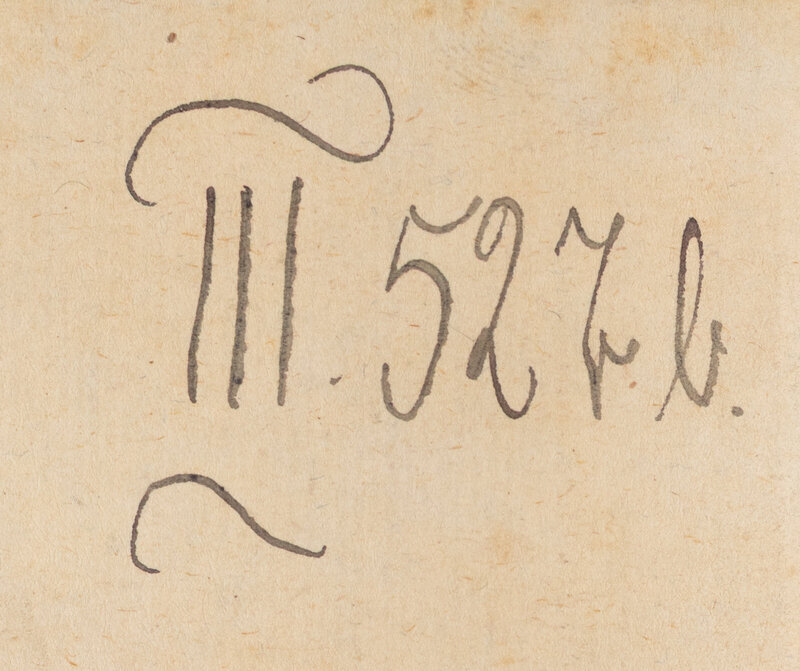 III. 527 b.